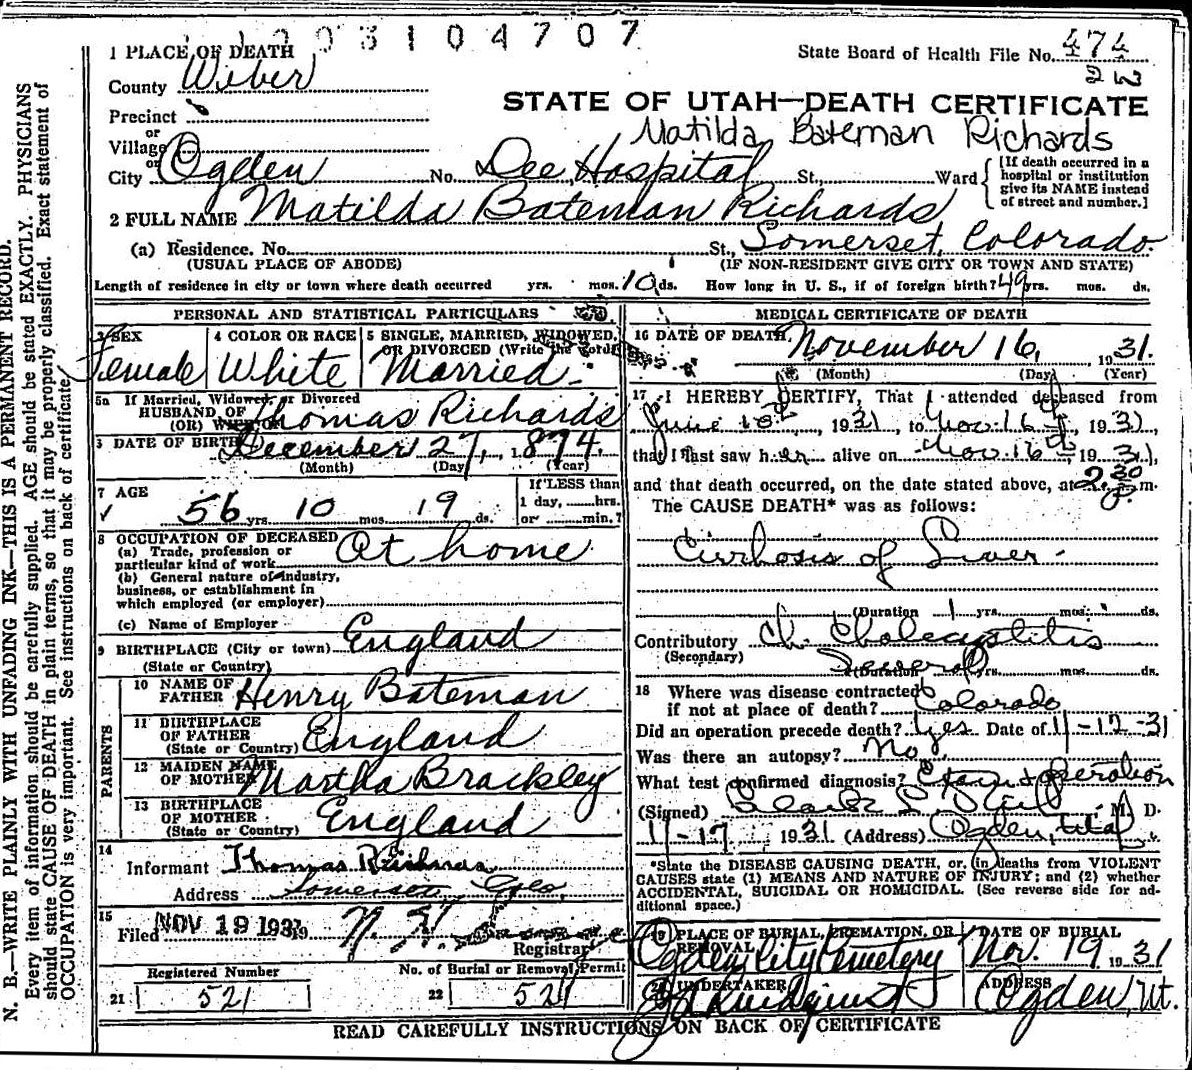 1003104707
1 PLACE OF DEATH
State Board of Health File No. 474
County Weber
STATE OF UTAH—DEATH CERTIFICATE
Precinct
Matilda Bateman Richards
or
Village
or
City Ogden No. Dee Hospital St., Ward
[If death occurred in a hospital or institution give its NAME instead of street and number.]
2 FULL NAME Matilda Bateman Richards
(a) Residence. No. St., Somerset, Colorado.
(USUAL PLACE OF ABODE) (IF NON-RESIDENT GIVE CITY OR TOWN AND STATE)
Length of residence in city or town where death occurred yrs. mos. 10 ds. How long in U. S., if of foreign birth? 49 yrs. mos. ds.
PERSONAL AND STATISTICAL PARTICULARS
3 SEX
Female
4 COLOR OR RACE
White
5 SINGLE, MARRIED, WIDOWED,
OR DIVORCED (Write the word)
Married.
5a If Married, Widowed, or Divorced
HUSBAND OF
(OR) WIFE OF Thomas Richards
6 DATE OF BIRTH December 27, 1874.
(Month) (Day) (Year)
7 AGE
56 yrs. 10 mos. 19 ds.
If LESS than
1 day, ......hrs.
or ......min.?
8 OCCUPATION OF DECEASED
(a) Trade, profession or
particular kind of work At home
(b) General nature of industry,
business, or establishment in
which employed (or employer)
(c) Name of Employer
9 BIRTHPLACE (City or town) England
(State or Country)
PARENTS
10 NAME OF
FATHER Henry Bateman
11 BIRTHPLACE
OF FATHER
(State or Country) England
12 MAIDEN NAME
OF MOTHER Martha Brackley
13 BIRTHPLACE
OF MOTHER
(State or Country) England
14
Informant Thomas Richards
Address Somerset Colo.
15
Filed NOV 19 1931 N. H.
Registrar
Registered Number No. of Burial or Removal Permit
21 521 22 521
MEDICAL CERTIFICATE OF DEATH
16 DATE OF DEATH November 16, 1931.
(Month) (Day) (Year)
17 I HEREBY CERTIFY, That I attended deceased from
June 1931, to Nov. 16 1931,
that I last saw her alive on Nov. 16 1931,
and that death occurred, on the date stated above, at 2:30 P. m.
The CAUSE DEATH* was as follows:
Cirrhosis of Liver
(Duration 1 yrs. mos. ds.
Contributory Ch. Cholecystitis
(Secondary)
(Duration Several yrs. mos. ds.
18 Where was disease contracted
if not at place of death? Colorado
Did an operation precede death? Yes Date of 11-12-31
Was there an autopsy? No.
What test confirmed diagnosis? Exam + operation
(Signed) M. D.
11-17, 1931 (Address) Ogden, Utah
*State the DISEASE CAUSING DEATH, or, (in deaths from VIOLENT
CAUSES state (1) MEANS AND NATURE OF INJURY; and (2) whether
ACCIDENTAL, SUICIDAL OR HOMICIDAL. (See reverse side for ad-
ditional space.)
19 PLACE OF BURIAL, CREMATION, OR
REMOVAL
Ogden City Cemetery
DATE OF BURIAL
Nov. 19 1931
20 UNDERTAKER
Lindquist
ADDRESS
Ogden, Ut.
READ CAREFULLY INSTRUCTIONS ON BACK OF CERTIFICATE
N. B.—WRITE PLAINLY WITH UNFADING INK—THIS IS A PERMANENT RECORD.
Every item of information should be carefully supplied. AGE should be stated EXACTLY. PHYSICIANS
should state CAUSE OF DEATH in plain terms, so that it may be properly classified. Exact statement of
OCCUPATION is very important. See instructions on back of certificate.